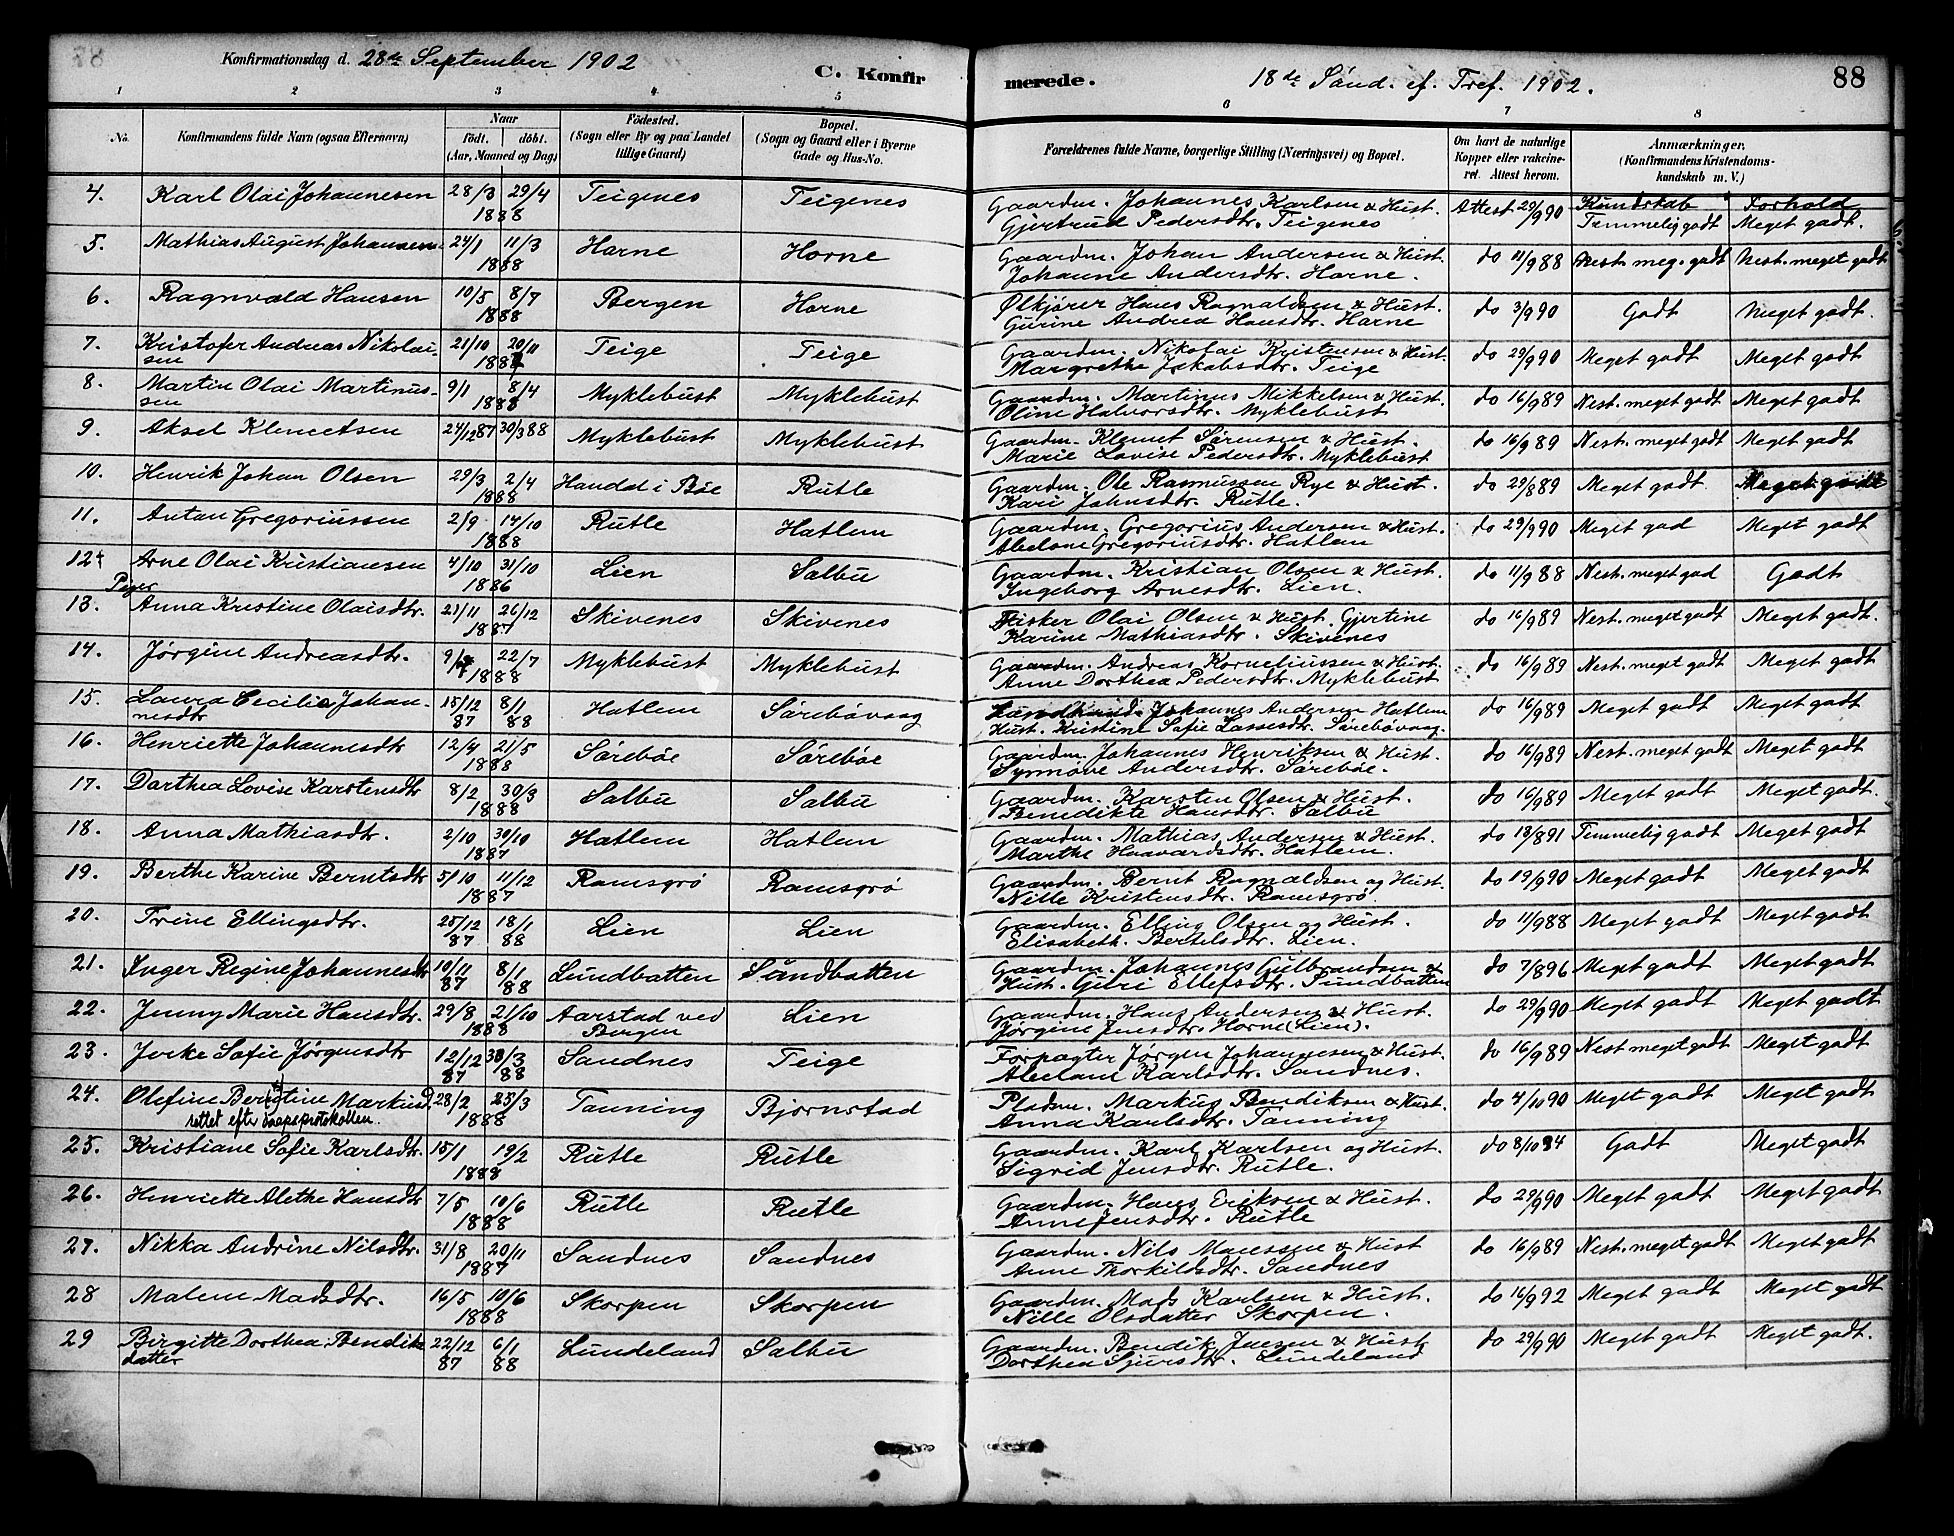 Konfirmationsdag d. 28de September 1902
C. Konfirmerede.
18de Sönd. ef. Tref. 1902.
88
1 2 3 4 5 6 7 8
No. Konfirmandens fulde Navn (ogsaa Efternavn) Naar født. døbt. (Aar, Maaned og Dag) Födested. (Sogn eller By og paa Landet tillige Gaard) Bopæl. (Sogn og Gaard eller i Byerne Gade og Hus-No. Forældrenes fulde Navne, borgerlige Stilling (Næringsvei) og Bopæl. Om havt de naturlige Kopper eller vakcineret. Attest herom. Anmærkninger. (Konfirmandens Kristendomskundskab m. V.)
Kundskab Forhold
4. Karl Olai Johannesen 28/3 29/4 1888 Teigenes Teigenes Gaardm. Johannes Karlsen & Hust. Gjertrud Pedersdtr. Teigenes Attest 29/9 90 Temmelig godt Meget godt.
5. Mathias August Johansen 24/1 11/3 1888 Horne Horne Gaardm. Johan Andersen & Hust. Johanne Andersdtr. Horne. do 11/9 88 Nest. meg. godt Nest. meget godt
6. Ragnvald Hansen 10/5 8/7 1888 Bergen Horne Ølkjører Hans Ragnaldsen & Hust. Gurine Andrea Hansdtr. Horne do 3/9 90 Godt Meget godt
7. Kristofer Andreas Nikolaisen 21/10 20/11 1887 Teige Teige Gaardm. Nikolai Kristensen & Hust. Margrethe Jakobsdtr. Teige do 29/9 90 Meget godt Meget godt
8. Martin Olai Martinussen 9/1 8/4 1888 Myklebust Myklebust Gaardm. Martinus Mikkelsen & Hust. Oline Halvorsdtr. Myklebust do 16/9 89 Nest. meget godt Meget godt
9. Aksel Klemetsen 24/12 87 30/3 88 Myklebust Myklebust Gaardm. Klemet Sørensen & Hust. Marie Lovise Pedersdtr. Myklebust do 16/9 89 Nest. meget godt Meget godt
10. Henrik Johan Olsen 29/3 2/4 1888 i Bøe Rutle Gaardm. Ole Rasmussen Rye & Hust. Kari Johnsdtr. Rutle. do 29/8 89 Meget godt Meget godt
11. Anton Gregoriussen 2/9 14/10 1888 Rutle Hatlem Gaardm. Gregorius Andersen & Hust. Abelone Gregoriusdtr. Hatlem do 29/9 90 Meget god Meget godt
12 Arne Olai Kristiansen 4/10 31/10 1886 Lien Salbu Gaardm. Kristian Olsen & Hust. Ingeborg Arnesdtr. Lien. do 11/9 88 Nest. meget god Godt
Piger
13. Anna Kristine Olaisdtr. 21/11 26/12 1887 Skivenes Skivenes Fisker Olai Olsen & Hust. Gjertine Karine Mathiasdtr. Skivenes do 16/9 89 Nest. meget godt Meget godt.
14. Jørgine Andreasdtr. 22/7 1888 Myklebust Myklebust Gaardm. Andreas Korneliussen & Hust. Anne Dorthea Pedersdtr. Myklebust do 16/9 89 Nest. meget godt Meget godt
15. Laura Cecilie Johannesdtr 15/12 87 8/1 88 Hatlem Sørebøvaag Johannes Andersen Hatlem Hust. Kristine Sofie Lassesdtr. Sørebøvaag. do 16/9 89 Meget godt Meget godt
16. Henriette Johannesdtr 12/4 21/5 1888 Sørebøe Sørebøe Gaardm. Johannes Henriksen & Hust. Synnøve Andersdtr. Sørebøe. do 16/9 89 Nest. meget godt Meget godt
17. Dorthea Lovise Karstensdtr 8/2 30/3 1888 Salbu Salbu Gaardm. Karsten Olsen & Hust. Benedikte Hansdtr. Salbu do 16/9 89 Meget godt Meget godt.
18. Anna Mathiasdtr. 2/10 30/10 1887 Hatlem Hatlem Gaardm. Mathias Andersen & Hust. Marthe Haavardsdtr. Hatlem. do 18/8 91 Temmelig godt Meget godt
19. Berthe Karine Berntsdtr 5/10 11/12 1887 Ramsgrø Ramsgrø Gaardm. Bernt Ragnaldsen og Hust. Nille Kristensdtr. Ramsgrø. do 19/9 90 Meget godt Meget godt
20. Trine Ellingsdtr. 25/12 87 18/1 88 Lien Lien Gaardm. Elling Olsen og Hust. Elisabeth. Bertelsdtr. Lien. do 11/9 88 Meget godt Meget godt
21. Inger Regine Johannesdtr 10/11 87 8/1 88 Sundbotten Sundbotten Gaardm. Johannes Gulbrandsen & Hust. Guri Ellefsdtr. Sundbotten do 7/8 96 Meget godt Meget godt
22. Jenny Marie Hansdtr. 29/8 21/10 1888 Aarstad ved Bergen Lien Gaardm. Hans Andersen & Hust. Jørgine Jensdtr. Horne (Lien). do 29/9 90 Meget godt Meget godt
23. Sofie Jørgensdtr 12/12 87 88 Sandnes Teige Forpagter Jørgen Johannesen & Hust. Abelone Karlsdtr. Sandnes. do 16/9 89 Nest. meget godt Meget godt
24. Olefine Markusd. 28/2 25/3 1888 Tanning Bjørnstad Pladsm. Markus Bendiksen & Hust. Anna Karlsdtr. Tanning do 4/10 90 Meget godt Meget godt
rettet efter daapsprotokollen.
25. Kristiane Sofie Karlsdtr. 15/1 19/2 1888 Rutle Rutle Gaardm. Karl Karlsen og Hust. Sigrid Jensdtr. Rutle. do 8/10 94 Godt Meget godt
26. Henriette Alethe Hansdtr 7/5 10/6 1888 Rutle Rutle Gaardm. Hans Eriksen & Hust. Anne Jensdtr. Rutle do 29/9 90 Meget godt Meget godt
27. Nikka Andrine Nilsdtr. 31/8 20/11 1887 Sandnes Sandnes Gaardm. Nils Monssen & Hust Anne Thorkildsdtr. Sandnes do 16/9 89 Nest. meget godt Meget godt
28 Malene Madsdtr. 16/5 10/6 1888 Skorpen Skorpen Gaardm. Mads Karlsen & Hust. Nille Olsdatter Skorpen. do 16/9 92 Meget godt Meget godt
29 Birgitte Dorthea Bendiksdatter 22/12 87 6/1 88 Lundeland Salbu Gaardm. Bendik Jensen & Hust Dorthea Sjursdtr. Lundeland do 29/9 90 Meget godt Meget godt.